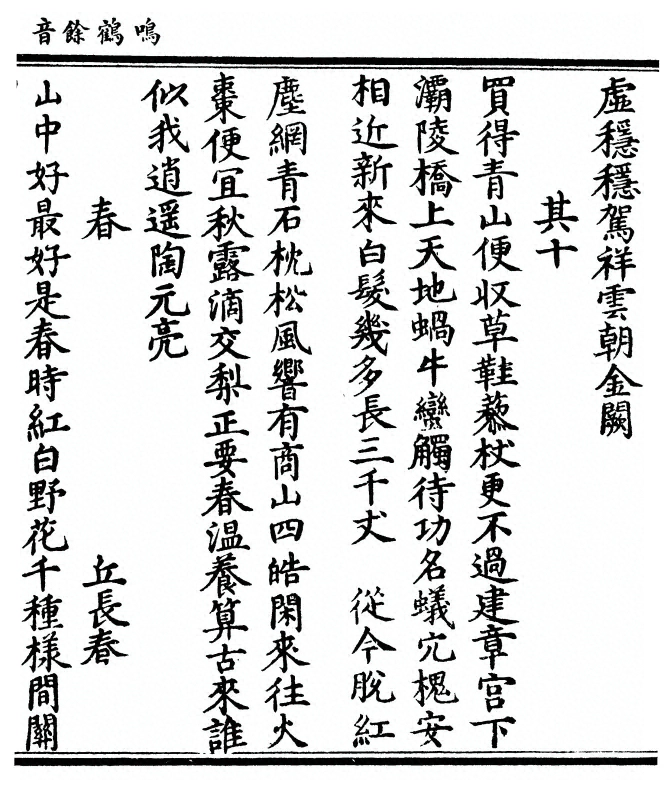 鳴鶴餘音
虛穩穩駕祥雲朝金闕
其十
買得青山便収草鞋藜杖更不過建章宮下
灞陵橋上天地蝸牛蠻觸待功名蟻穴槐安
相近新來白髮幾多長三千丈 從今脫紅
塵網青石枕松風響有商山四皓閑來往火
棗便宜秋露滴交梨正要春溫養算古來誰
似我逍遥陶元亮
春 丘長春
山中好最好是春時紅白野花千種様間關